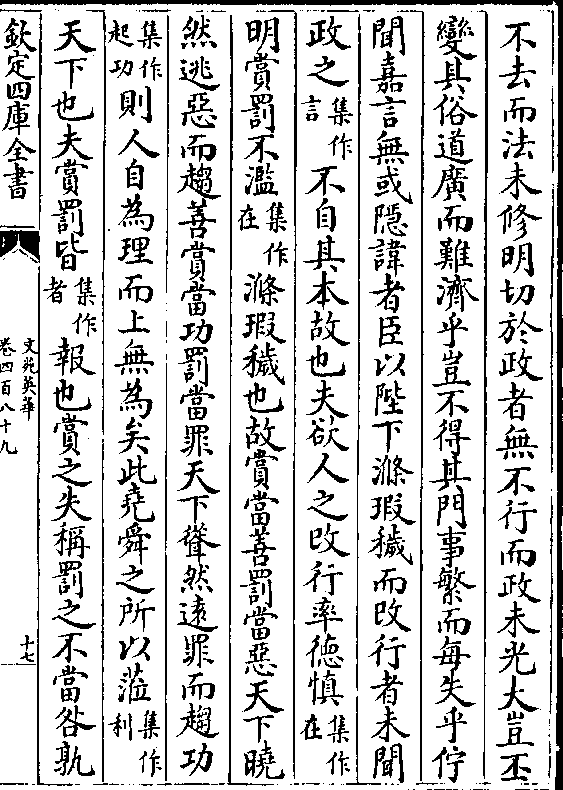 不去而法未修明切於政者無不行而政未光大豈丕
變其俗道廣而難濟乎豈不得其門事繁而每失乎佇
聞嘉言無或隱諱者臣以陛下滌瑕穢而改行者未聞
政之集作言不自其本故也夫欲人之改行率德慎集作在
明賞罰不濫集作在滌瑕穢也故賞當善罰當惡天下曉
然逃惡而趨善賞當功罰當罪天下聳然遠罪而趨功
集作起功則人自為理而上無為矣此堯舜之所以蒞集作利
天下也夫賞罰皆集作者報也賞之失稱罰之不當咎孰
欽定四庫全書
文苑英華
卷四百八十九
十七